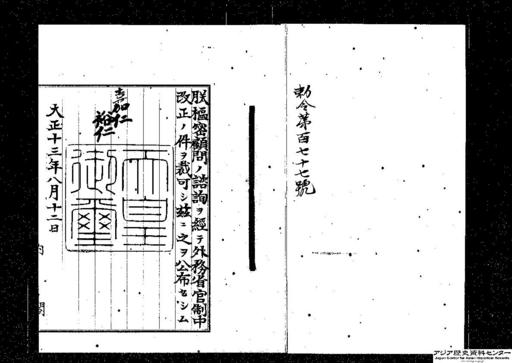 勅令第百七十七號
朕樞密顧問ノ諮詢ヲ經テ外務省官制中
改正ノ件ヲ裁可シ茲ニ之ヲ公布セシム
嘉仁
裕仁
天皇
御璽
大正十三年八月十二日
内閣
アジア歴史資料センター
Japan Center for Asian Historical Records